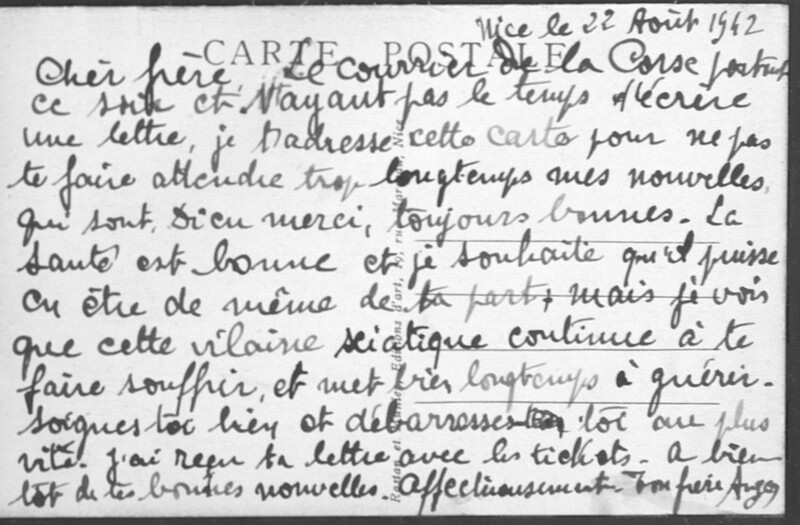 Nice le 22 Août 1942
CARTE POSTALE
Cher frère, Le courrier de la Corse partant
ce soir et N'ayant pas le temps d'écrire
une lettre, je t'adresse cette carte pour ne pas
te faire attendre trop longtemps mes nouvelles,
qui sont, Dieu merci, toujours bonnes. La
santé est bonne et je souhaite qu'il puisse
en être de même de ta part, mais je vois
que cette vilaine sciatique continue à te
faire souffrir, et met bien longtemps à guérir.
soignes toi bien et débarrasses toi au plus
vite. J'ai reçu ta lettre avec les tickets. A bien
tôt de tes bonnes nouvelles. Affectueusement Ton frère Ange
Editions d'art, rue Nice